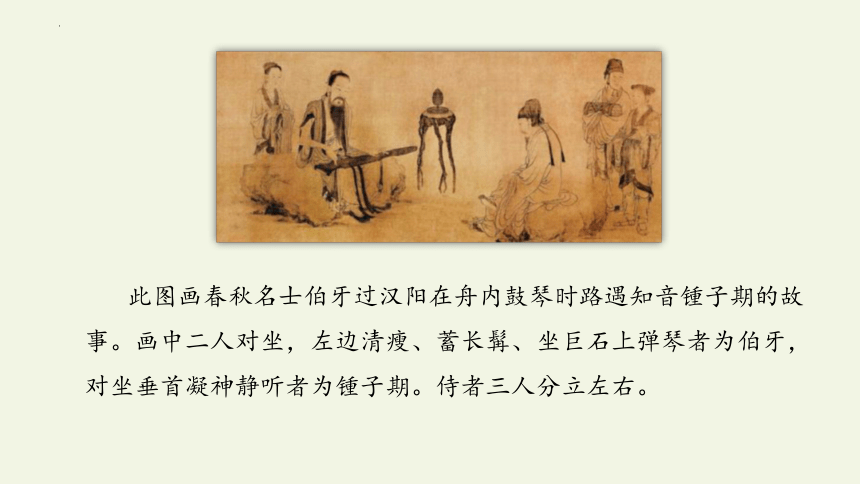 此图画春秋名士伯牙过汉阳在舟内鼓琴时路遇知音锺子期的故
事。画中二人对坐，左边清瘦、蓄长髯、坐巨石上弹琴者为伯牙，
对坐垂首凝神静听者为锺子期。侍者三人分立左右。